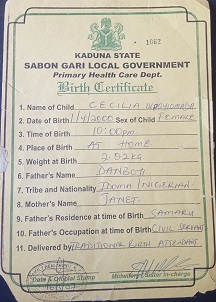 1662
KADUNA STATE
SABON GARI LOCAL GOVERNMENT
Primary Health Care Dept.
Birth Certificate
1. Name of Child CECILIA
2. Date of Birth 1/4/2000 Sex of Child FEMALE
3. Time of Birth 10:00pm
4. Place of Birth AT HOME
5. Weight at Birth 2.82kg
6. Father's Name DANBOYI
7. Tribe and Nationality IDOMA / NIGERIAN
8. Mother's Name JANET
9. Father's Residence at time of Birth SAMARU
10. Father's Occupation at time of Birth CIVIL SERVANT
11. Delivered by TRADITIONAL BIRTH ATTENDANT
Date & Official Stamp
Midwifery Sister in-charge